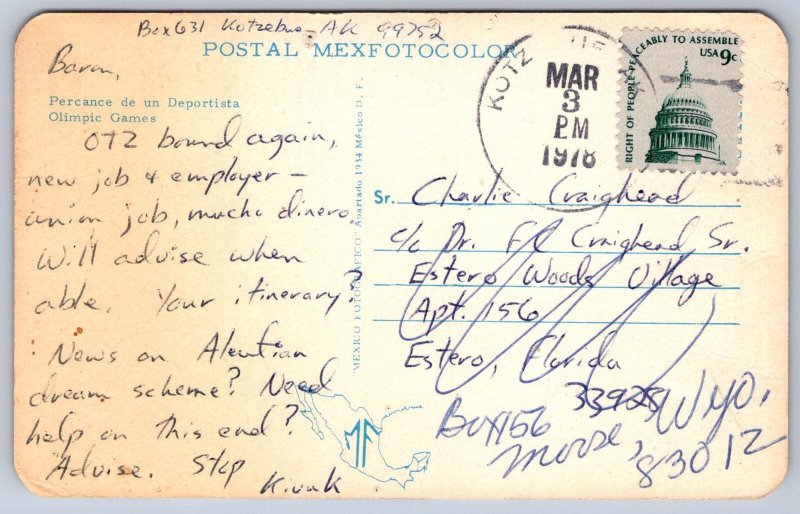 Box 631 Kotzebue, AK 99752
POSTAL MEXFOTOCOLOR
Baron,
Percance de un Deportista
Olimpic Games
OTZ bound again,
new job & employer –
union job, mucho dinero.
Will advise when
able. Your itinerary?
News on Aleutian
dream scheme? Need
help on this end?
Advise. Stop
MEXICO FOTOGRAFICO" Apartado 1934 México D. F.
MF
KOTZ
MAR
3
PM
1978
RIGHT OF PEOPLE PEACEABLY TO ASSEMBLE
USA 9c
Sr. Charlie Craighead
c/o Dr. FC Craighead Sr.
Estero Woods Village
Apt. 156
Estero, Florida
33928
Box 156 Wyo.
Moose, 83012